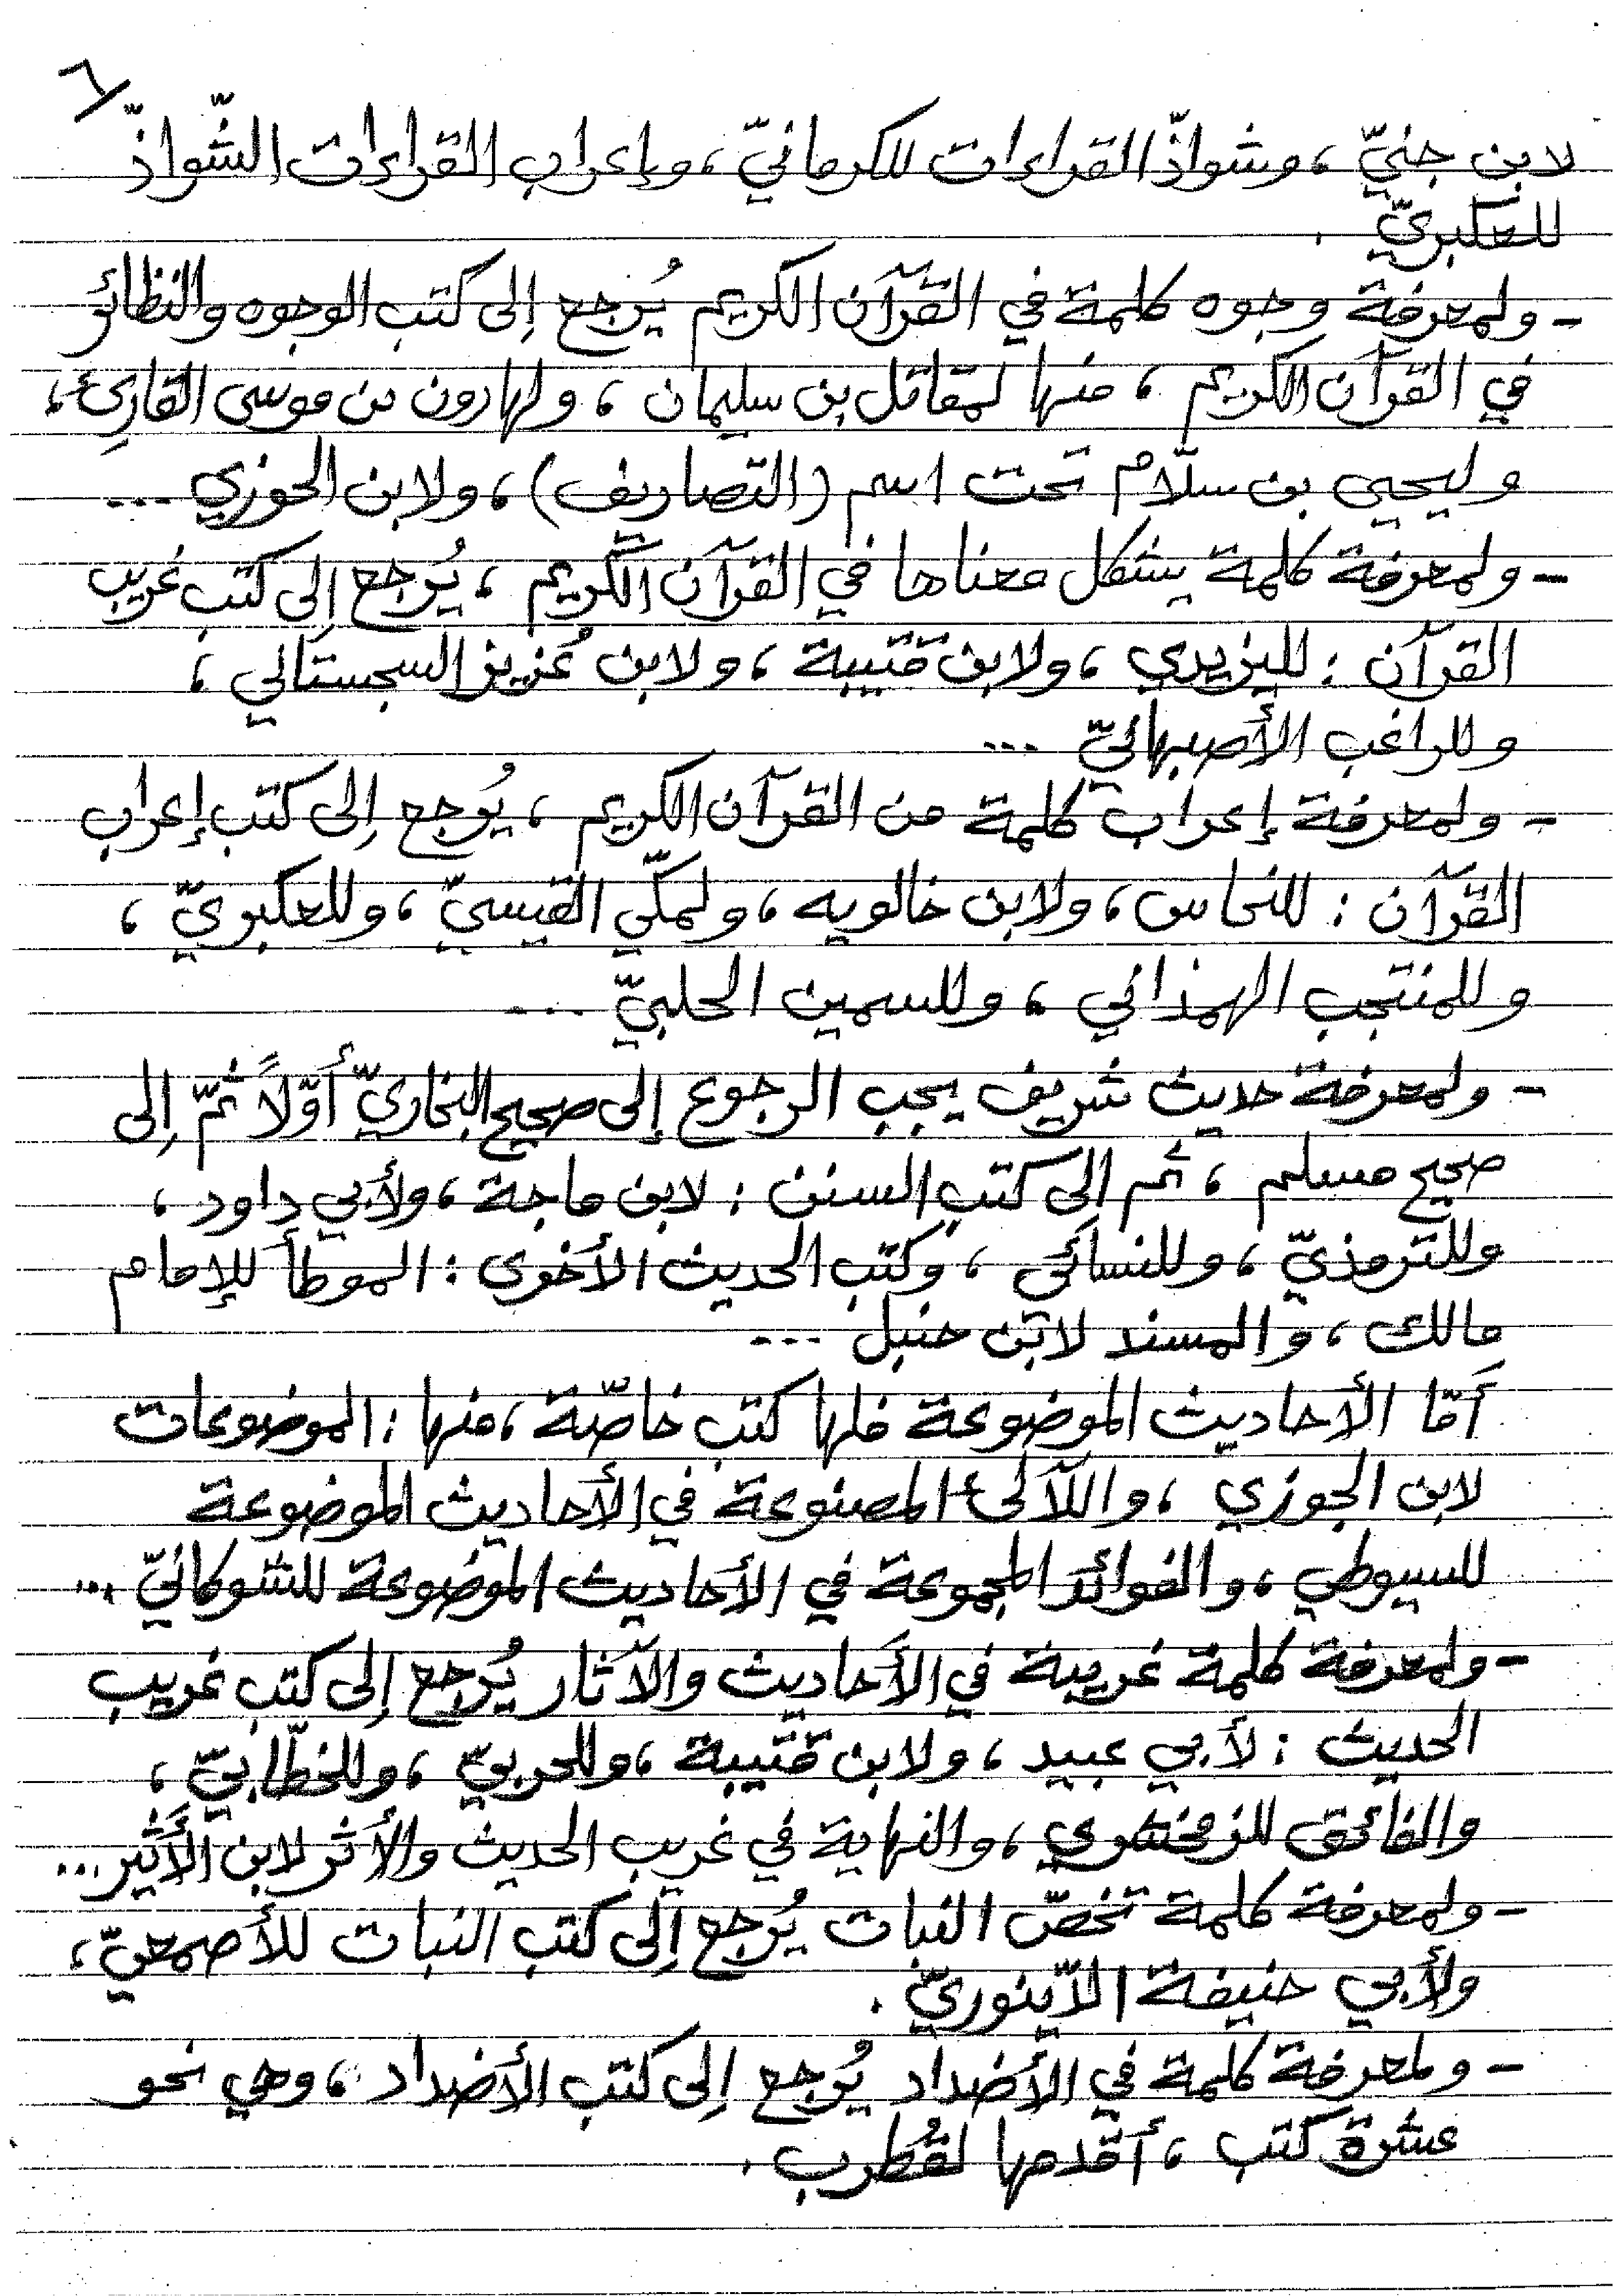 ٦
لابن جنيّ ، وشواذّ القراءات للكرمانيّ ، وإعراب القراءات الشّواذّ
للعكبريّ .
- ولمعرفة وجوه كلمة في القرآن الكريم يُرجع إلى كتب الوجوه والنظائر
في القرآن الكريم ، منها لمقاتل بن سليمان ، ولهارون بن موسى القارئ ،
وليحيى بن سلّام تحت اسم (التصاريف) ، ولابن الجوزي ...
- ولمعرفة كلمة يشكل معناها في القرآن الكريم ، يُرجع إلى كتب غريب
القرآن : لليزيدي ، ولابن قتيبة ، ولابن عُزيز السجستاني ،
وللراغب الأصبهانيّ ...
- ولمعرفة إعراب كلمة من القرآن الكريم ، يُرجع إلى كتب إعراب
القرآن : للنحاس ، ولابن خالويه ، ولمكّي القيسيّ ، وللعكبريّ ،
وللمنتجب الهمذاني ، وللسمين الحلبيّ ...
- ولمعرفة حديث شريف يجب الرجوع إلى صحيح البخاريّ أَوّلاً ثمّ إلى
صحيح مسلم ، ثم إلى كتب السنن : لابن ماجة ، ولأبي داود ،
وللترمذيّ ، وللنسائي ، وكتب الحديث الأخرى : الموطأ للإمام
مالك ، والمسند لابن حنبل ...
أَمّا الأحاديث الموضوعة فلها كتب خاصّة ، منها : الموضوعات
لابن الجوزي ، واللآلئ المصنوعة في الأحاديث الموضوعة
للسيوطي ، والفوائد المجموعة في الأحاديث الموضوعة للشوكانيّ ...
- ولمعرفة كلمة غريبة في الأحاديث والآثار يُرجع إلى كتب غريب
الحديث : لأبي عبيد ، ولابن قتيبة ، وللحربيّ ، وللخطّابيّ ،
والفائق للزمخشري ، والنهاية في غريب الحديث والأثر لابن الأَثير ...
- ولمعرفة كلمة تخصّ النبات يُرجع إلى كتب النبات للأصمعيّ ،
ولأبي حنيفة الدّينوريّ .
- ولمعرفة كلمة في الأضداد يُرجع إلى كتب الأضداد ، وهي نحو
عشرة كتب ، أقدمها لقُطرب .